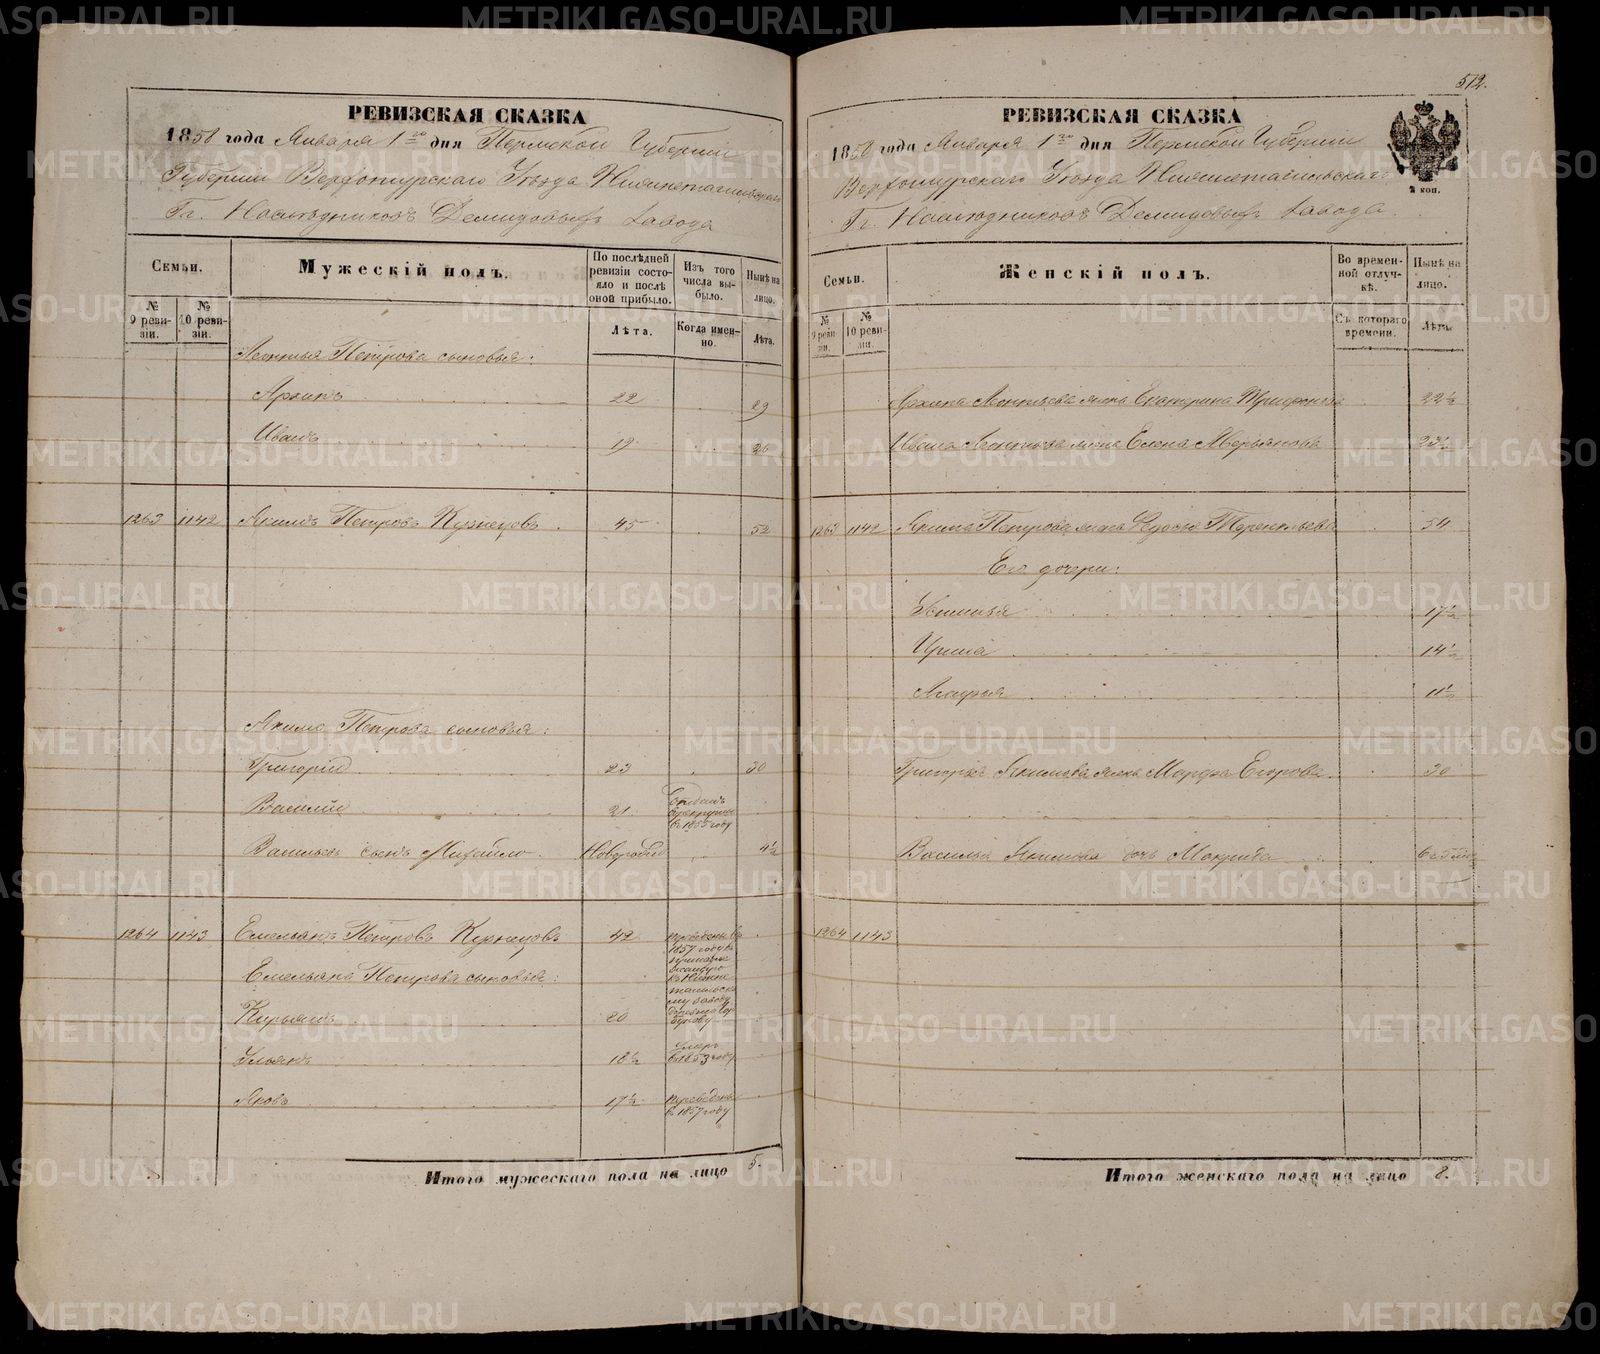 РЕВИЗСКАЯ СКАЗКА
1858 года Января 1го дня Пермской Губернии
Губернии Верхотурскаго Уѣзда Нижнетагильскаго
Гг. Наслѣдниковъ Демидовыхъ завода
Семьи.
Мужескій полъ.
По послѣдней ревизіи состояло и послѣ оной прибыло.
Изъ того числа выбыло.
Нынѣ на лицо.
№ 9 ревизіи.
№ 10 ревизіи.
Лѣта.
Когда именно.
Лѣта.
Леонтья Петрова сыновья:
Архипъ 22 29
Иванъ 19 26
1263 1142 Якимъ Петровъ Кузнецовъ. 45 52
Якима Петрова сыновья:
Григорій 23 30
Василій 21 отданъ в рекруты в 1855 году
Васильевъ сынъ Михайло. Новорожд 4½
1264 1143 Емельянъ Петровъ Кузнецовъ 42 переведены въ 1857 году
Емельяна Петрова сыновья:
Кирьянъ 20
Ульянъ 18½ умеръ в 1853 году
Яковъ 17½ переведенъ в 1857 году
Итого мужескаго пола на лицо 5.
512.
РЕВИЗСКАЯ СКАЗКА
1858 года Января 1го дня Пермской Губерніи
Верхотурскаго Уѣзда Нижнетагильскаго
Гг. Наслѣдниковъ Демидовыхъ завода.
2 коп.
Семьи.
Женскій полъ.
Во временной отлучкѣ.
Нынѣ на лицо.
№ 9 ревизіи.
№ 10 ревизіи.
Съ котораго времени.
Лѣта.
Архипа Леонтьева жена Екатерина Трифонова 22½
Ивана Леонтьева жена Елена Аверьянова 23½
1263 1142 Якима Петрова жена Федосья Терентьева 54
Его дочери:
Устинья 17½
Ирина 14½
Агафья 11½
Григорья Якимова жена Марфа Егорова. 30
Василья Якимова дочь Макрида
1264 1143
Итого женскаго пола на лицо 8.
METRIKI.GASO-URAL.RU